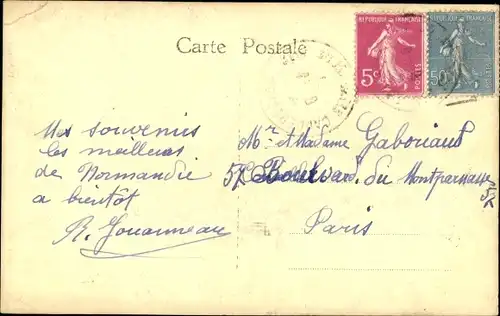 Carte Postale
RÉPUBLIQUE FRANÇAISE
5c
POSTES
RÉPUBLIQUE FRANÇAISE
50
POSTES
Mes souvenirs
les meilleurs
de Normandie
a bientôt
R. Jouanneau
Mr et Madame Gaboriaud
52 Boulevard du Montparnasse
Paris